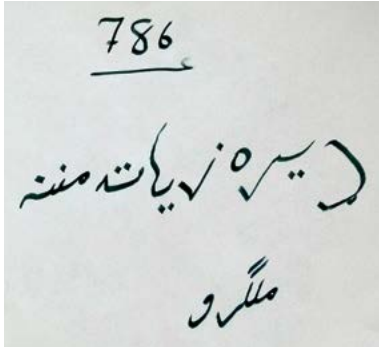 786
ډیره زیاته مننه
ملګرو